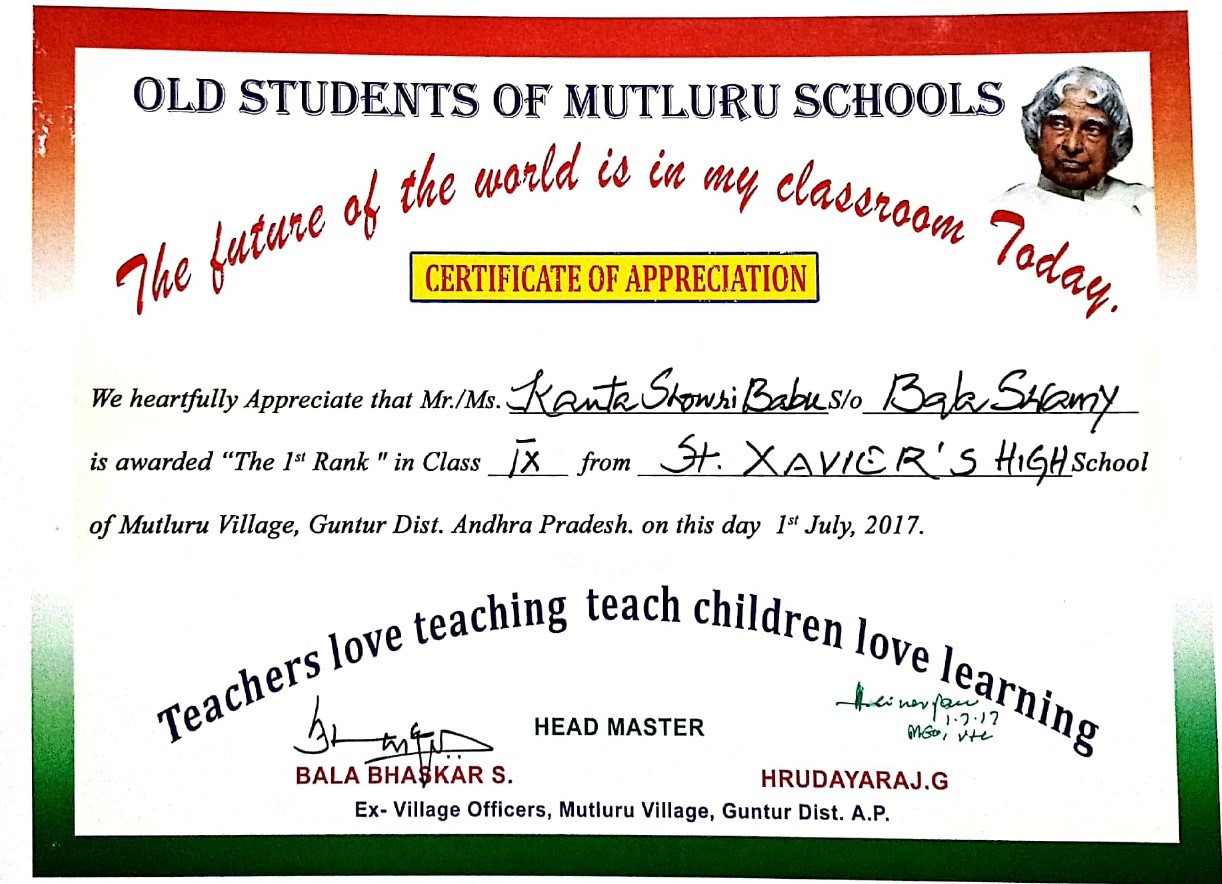 OLD STUDENTS OF MUTLURU SCHOOLS
The future of the world is in my classroom Today.
CERTIFICATE OF APPRECIATION
We heartfully Appreciate that Mr./Ms. Kanta Showri Babu S/o Bala Swamy
is awarded “The 1st Rank " in Class IX from St. XAVIER'S HIGH School
of Mutluru Village, Guntur Dist. Andhra Pradesh. on this day 1st July, 2017.
Teachers love teaching teach children love learning
1.7.17
HEAD MASTER
BALA BHASKAR S. HRUDAYARAJ.G
Ex- Village Officers, Mutluru Village, Guntur Dist. A.P.